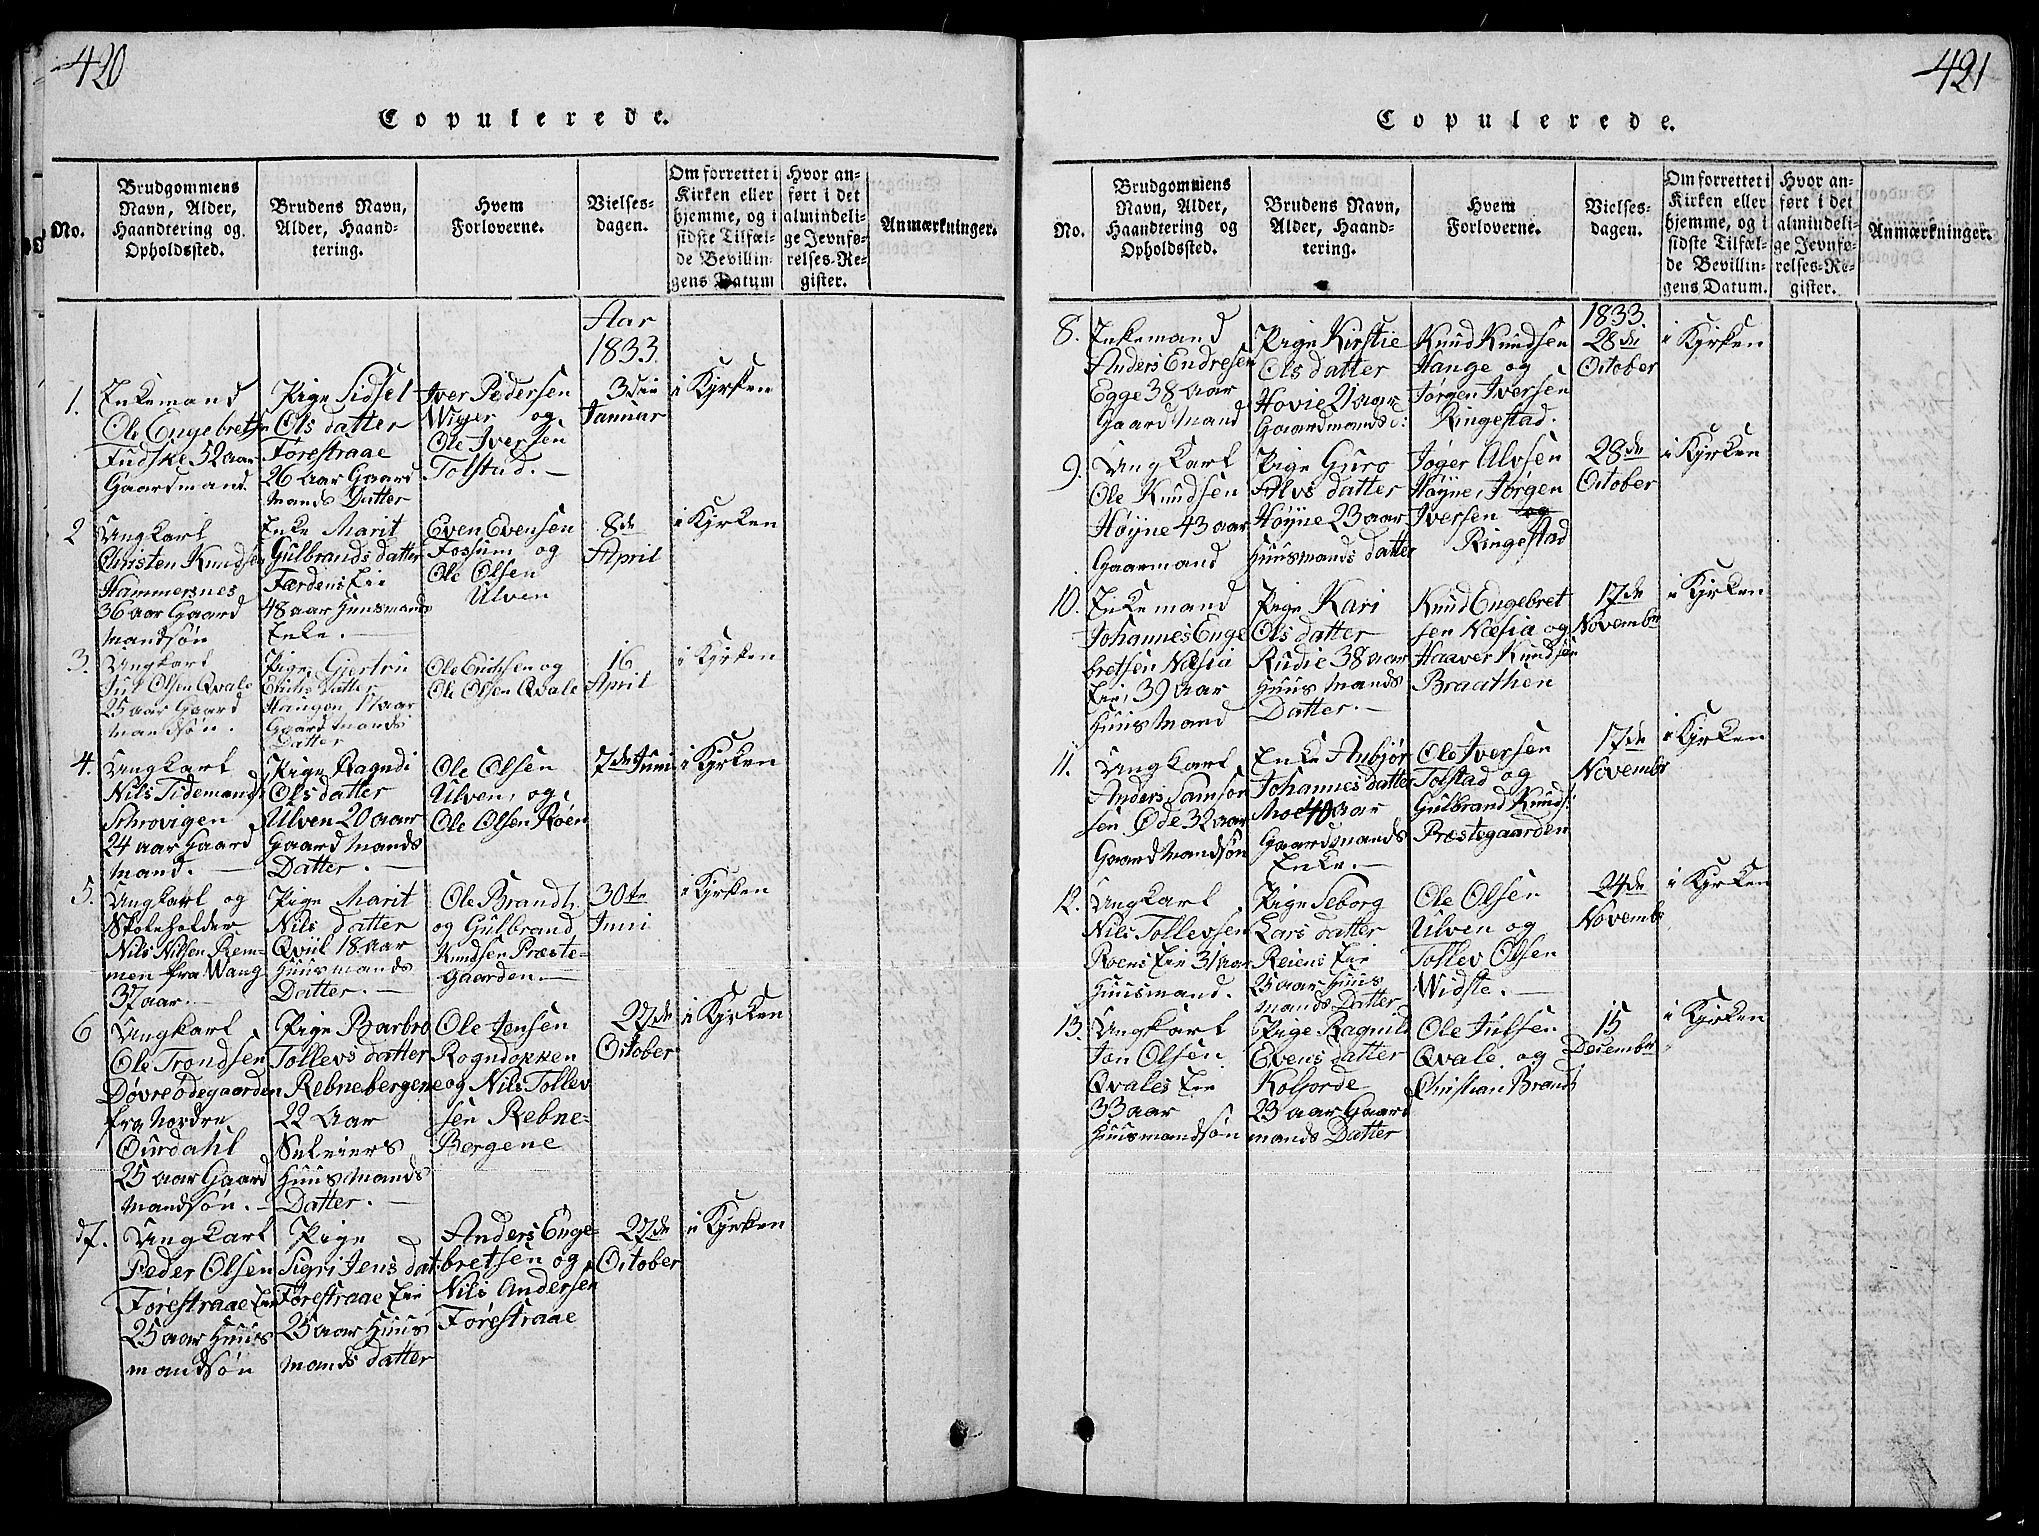 420
Copulerede.
No.
Brudgommens
Navn, Alder,
Haandtering og
Opholdssted.
Brudens Navn,
Alder, Haand-
tering.
Hvem
Forloverne.
Vielses-
dagen.
Om forrettet i
Kirken eller
hjemme, og i
sidste Tilfæl-
de Bevillin-
gens Datum
Hvor an-
ført i det
almindeli-
ge Jevnfø-
relses-Re-
gister.
Anmærkninger.
Aar
1833
1.
Enkemand
Ole Engebrets
Fudske 52 aar
Gaardmand
Pige Sidsel
Ols datter
Førestraae
26 aar Gaard
mands Datter
Iver Pedersen
Wiger og
Ole Iversen
Tolstad. —
3die
Januar
i Kyrken
2
Ungkarl
Christen Knudsen
Hammersnes
36 aar Gaard
mandsøn
Enke Marit
Gulbrands datter
Færdens Eie
48 aar Huusmands
Enke. —
Even Evensen
Fossum og
Ole Olsen
Ulven
8de
April
i Kyrken
3.
Ungkarl
Jul Olsen Qvale
25 aar Gaard
mandsøn.
Pige Gjertru
Erichs Datter
Haugen 17 aar
Gaard mands
Datter
Ole Erichsen og
Ole Olsen Qvale
16
April
i Kyrken
4.
Ungkarl
Nils Tidemands
Schrovigen
24 aar Gaard
mand. —
Pige Ragndi
Ols datter
Ulven 20 aar
Gaard mands
Datter. —
Ole Olsen
Ulven, og
Ole Olsen Røen
7de Juni
i Kyrken
5.
Ungkarl og
Skoleholder
Nils Nilsen Rem-
men fra Wang
37 aar. —
Pige Marit
Nils datter
Qviil 18 aar
Huusmands
Datter. —
Ole Brandt
og Gulbrand
Knudsen Præste-
Gaarden. —
30te
Juni
i Kyrken
6
Ungkarl
Ole Trondsen
Døvreødegaarden
fra Nordre
Ourdahl
25 aar Gaard
mandsøn. —
Pige Barbro
Tollevs datter
Rebnebergene
22 Aar
Seleiers
Huus mands
Datter. —
Ole Jensen
Rogndokken
og Nils Tollev
sen Rebne-
Bergene
27de
October
i Kyrken
7.
Ungkarl
Peder Olsen
Førestraae Eie
25 aar Huus
mandsøn
Pige
Sigri Jens dat:
Førestraae Eie
25 aar Huus
mands datter
Anders Enge-
bretsen og
Nils Andersen
Førestraae
27de
October
i Kyrken
421
Copulerede.
No.
Brudgommens
Navn, Alder,
Haandtering og
Opholdssted.
Brudens Navn,
Alder, Haand-
tering.
Hvem
Forloverne.
Vielses-
dagen.
Om forrettet i
Kirken eller
hjemme, og i
sidste Tilfæl-
de Bevillin-
gens Datum.
Hvor an-
ført i det
almindeli-
ge Jevnfø-
relses-Re-
gister.
Anmærkninger.
1833
8.
Enkemand
Anders Endresen
Egge 38 aar
Gaard Mand
Pige Kirstie
Ols datter
Hovie 21 aar
Gaardmands d:
Knud Knudsen
Hange og
Jørgen Iversen
Ringestad.
28de
October
i Kyrken
9.
Ungkarl
Ole Knudsen
Høyne 43 aar
Gaarmand
Pige Guro
Alvs datter
Høyne 23 aar
Huusmands datter
Jøger Alvsen
Høyne, Jørgen
Iversen og
Ringestad
28de
October
i Kyrken
10.
Enkemand
Johannes Enge
bretsen Næsia
Eie, 39 aar
Huus Mand
Pige Kari
Ols datter
Rudie 38 aar
Huus Mands
Datter. —
Knud Engebret
sen Næsia og
Haaver Knudsen
Braathen
17de
Novembr
i Kyrken
11.
Ungkarl
Anders Samson
sen Øde 32 aar
Gaard Mandsøn
Enke Anbjør
Johannes datter
Moe 40 aar
Gaardsmands
Enke. —
Ole Iversen
Tolstad og
Gulbrand Knuds:
Præstegaarden
17de
Novembr
i Kyrken
12.
Ungkarl
Nils Tollevsen
Roens Eie 31 aar
Huusmand.
Pige Seborg
Lars datter
Reiens Eie
25 aar Huus
mands Datter
Ole Olsen
Ulven og
Tollev Olsen
Widste. —
24de
Novembr
i Kyrken
13.
Ungkarl
Jon Olsen
Qvales Eie
33 aar
Huusmandsøn
Pige Ragnild
Evens datter
Kolsorde
23 aar Gaard
mands Datter
Ole Julsen
Qvale og
Christian Brandt
15
December
i Kyrken